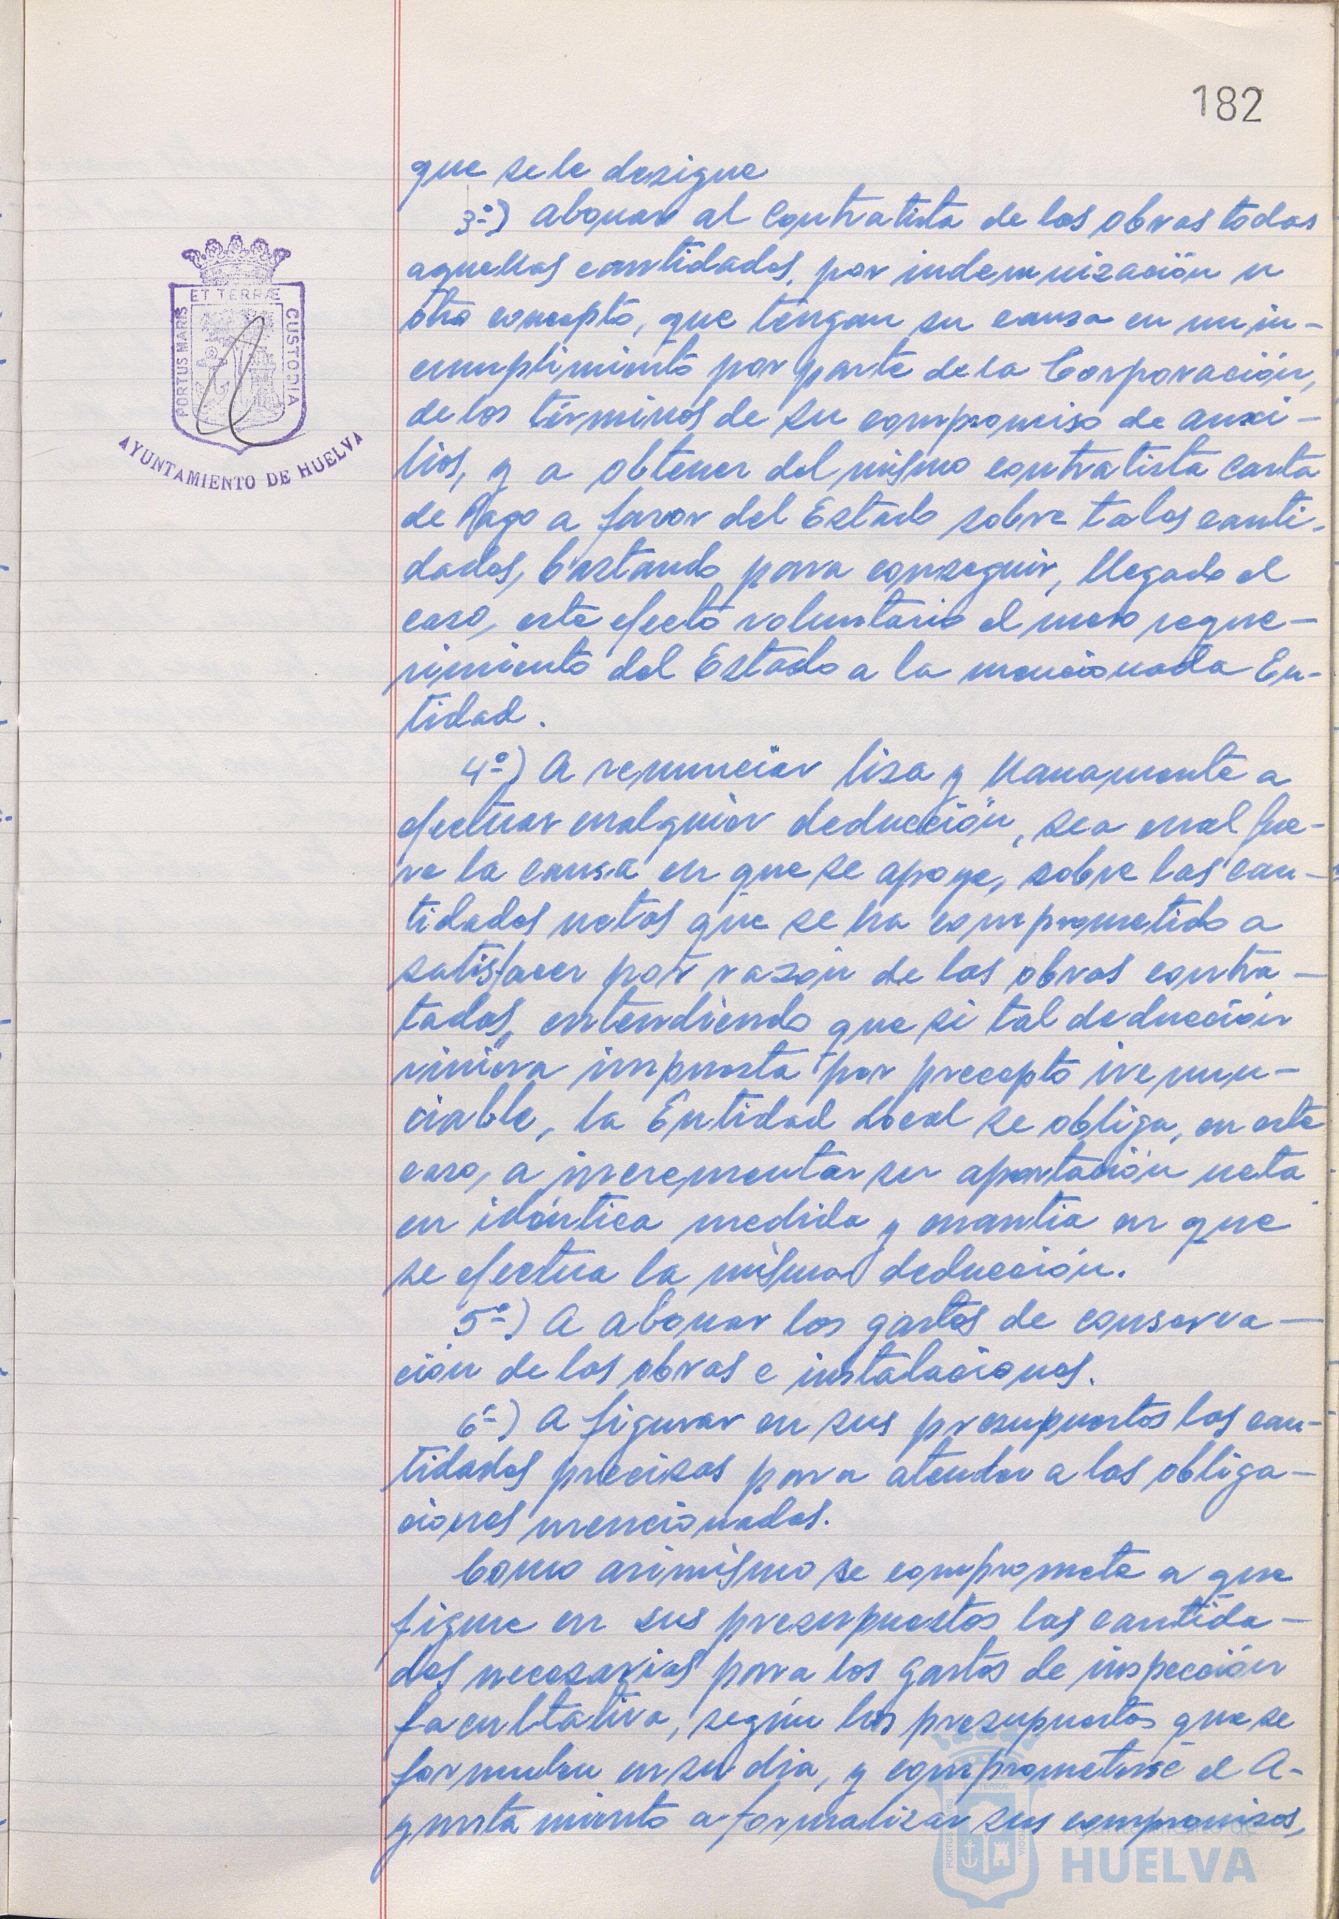 182
que se le designe
3º) Abonar al Contratista de las obras todas
aquellas cantidades, por indemnización u
otro concepto, que tengan su causa en un in-
cumplimiento por parte de la Corporación,
de los términos de su compromiso de auxi-
lios, y a obtener del mismo contratista carta
de Pago a favor del Estado sobre tales canti-
dades, bastando para conseguir, llegado el
caso, este efecto voluntario el mero reque-
rimiento del Estado a la mencionada En-
tidad.
4º) A renunciar lisa y llanamente a
efectuar cualquier deducción, sea cual fue-
re la causa en que se apoye, sobre las can-
tidades netas que se ha comprometido a
satisfacer por razón de las obras contra-
tadas, entendiendo que si tal deducción
viniera impuesta por precepto irrenun-
ciable, la Entidad Local se obliga, en este
caso, a incrementar su aportación neta
en idéntica medida y cuantia en que
se efectua la misma deducción.
5º) A abonar los gastos de conserva-
ción de las obras e instalaciones.
6º) A figurar en sus presupuestos las can-
tidades precisas para atender a las obliga-
ciones mencionadas.
Como asimismo se compromete a que
figure en sus presupuestos las cantida-
des necesarias para los gastos de inspección
facultativa, según los presupuestos que se
formulen en su dia, y comprometerse el A-
yuntamiento a formalizar sus compromisos,
PORTUS MARIS
ET TERRÆ
CUSTODIA
AYUNTAMIENTO DE HUELVA
HUELVA